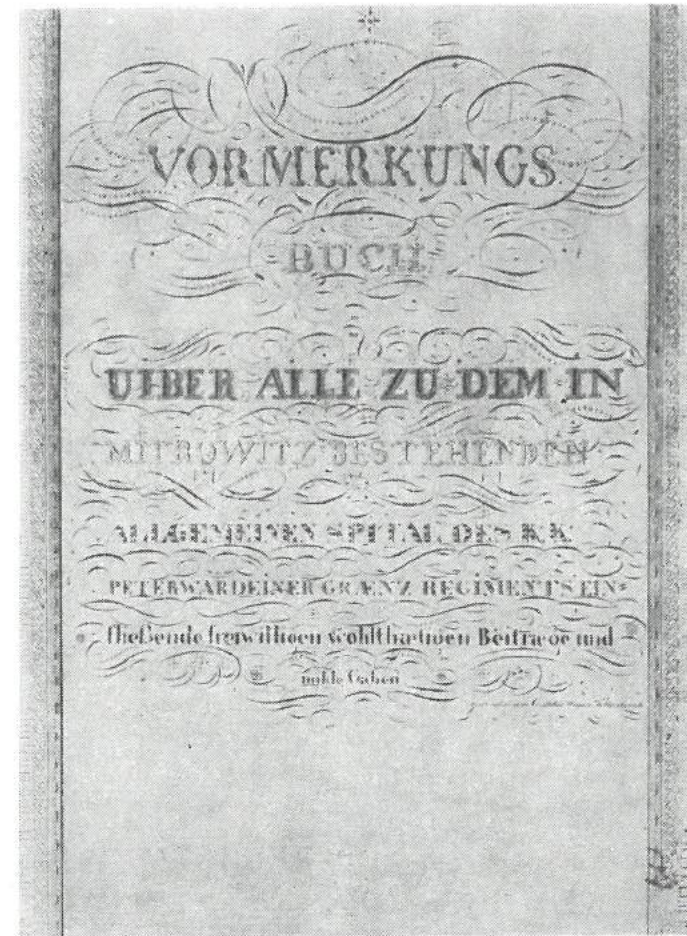 VORMERKUNGS
BUCH
UEBER ALLE ZU DEM IN
MITROWITZ BESTEHENDEN
ALLGEMEINEN SPITAL DES K.K.
PETERWARDEINER GRÆNZ REGIMENTS EIN=
fließende freiwilligen wohlthætigen Beitræge und
milde Gaben